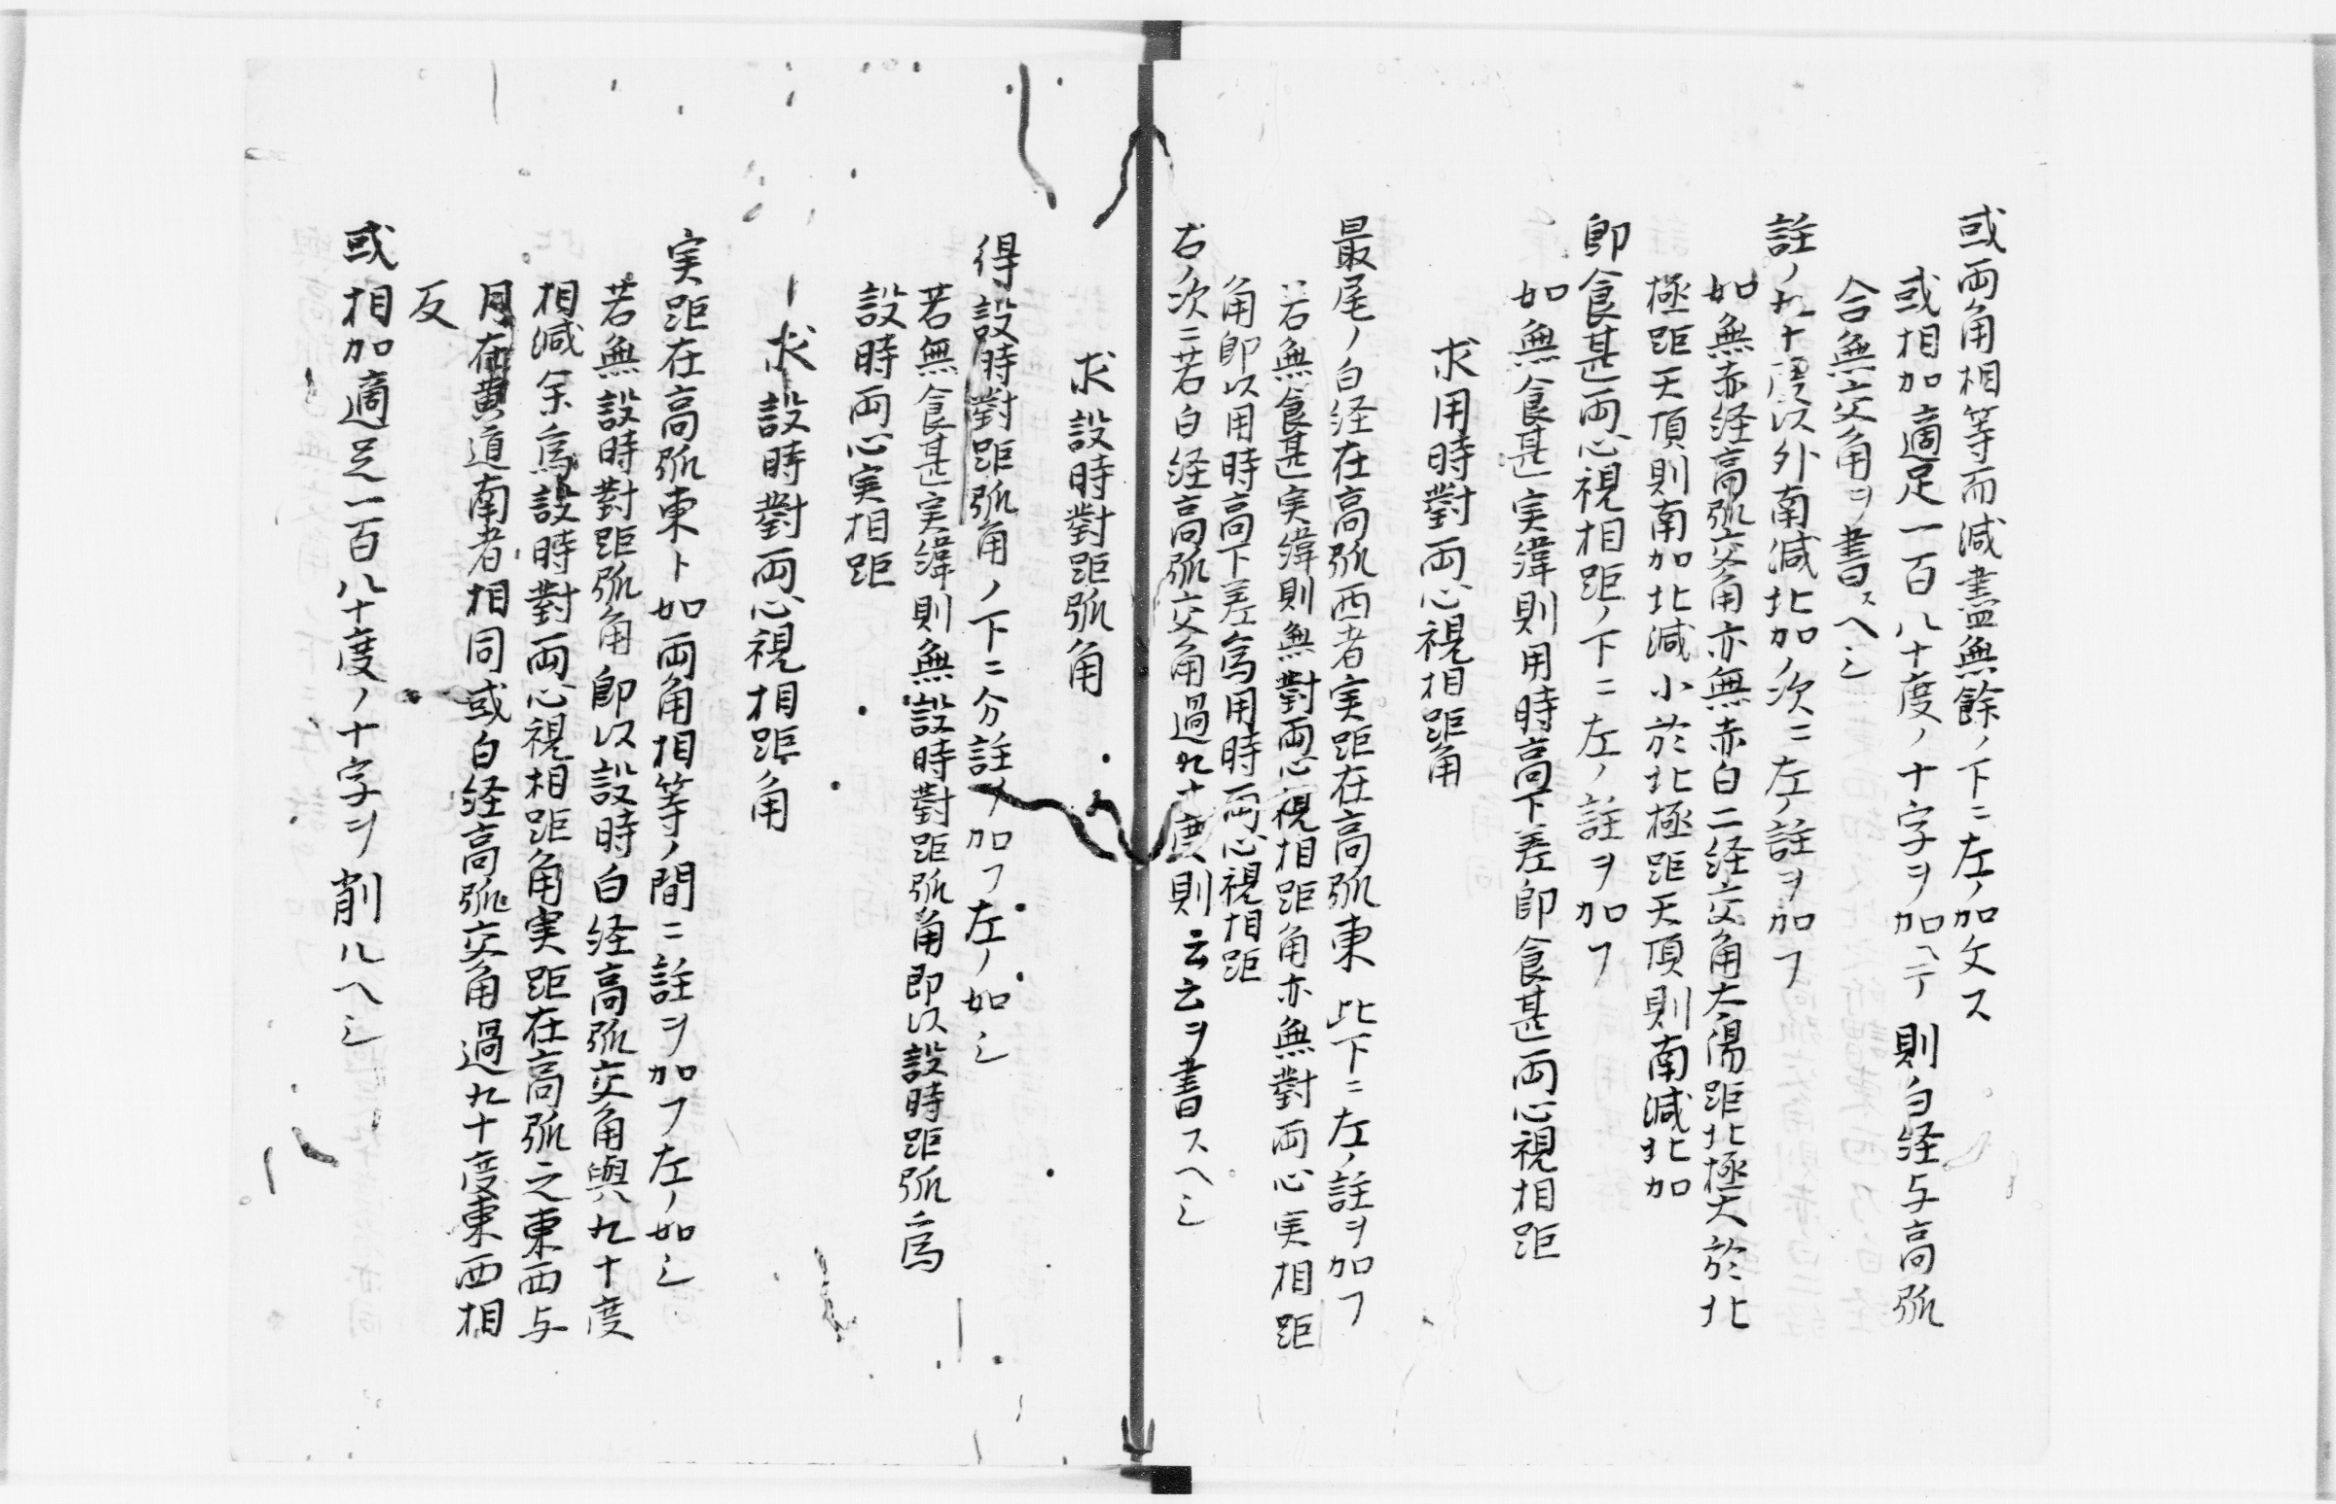 或両角相等而減盡無餘ノ下ニ左ノ加文ス
或相加適足一百八十度ノ十字ヲ加ヘテ則白経与高弧
合無交角ヲ書スヘシ
註ノ九十度以外南減北加ノ次ニ左ノ註ヲ加フ
如無赤経高弧交角亦無赤白二経交角太陽距北極大於北
極距天頂則南加北減小於北極距天頂則南減北加
即食甚両心視相距ノ下ニ左ノ註ヲ加フ
如無食甚実緯則用時高下差即食甚両心視相距
求用時對両心視相距角
最尾ノ白経在高弧西者実距在高弧東此下ニ左ノ註ヲ加フ
若無食甚実緯則無對両心視相距角亦無對両心実相距
角即以用時高下差為用時両心視相距
右ノ次ニ若白経高弧交角過九十度則云云ヲ書スヘシ
求設時對距弧角
得設時對距弧角ノ下ニ分註ヲ加フ左ノ如シ
若無食甚実緯則無設時對距弧角即以設時距弧為
設時両心実相距
求設時對両心視相距角
実距在高弧東ト如両角相等ノ間ニ註ヲ加フ左ノ如シ
若無設時對距弧角即以設時白経高弧交角與九十度
相減余為設時對両心視相距角実距在高弧之東西与
月在黄道南者相同或白経高弧交角過九十度東西相
反
或相加適足一百八十度ノ十字ヲ削ルヘシ